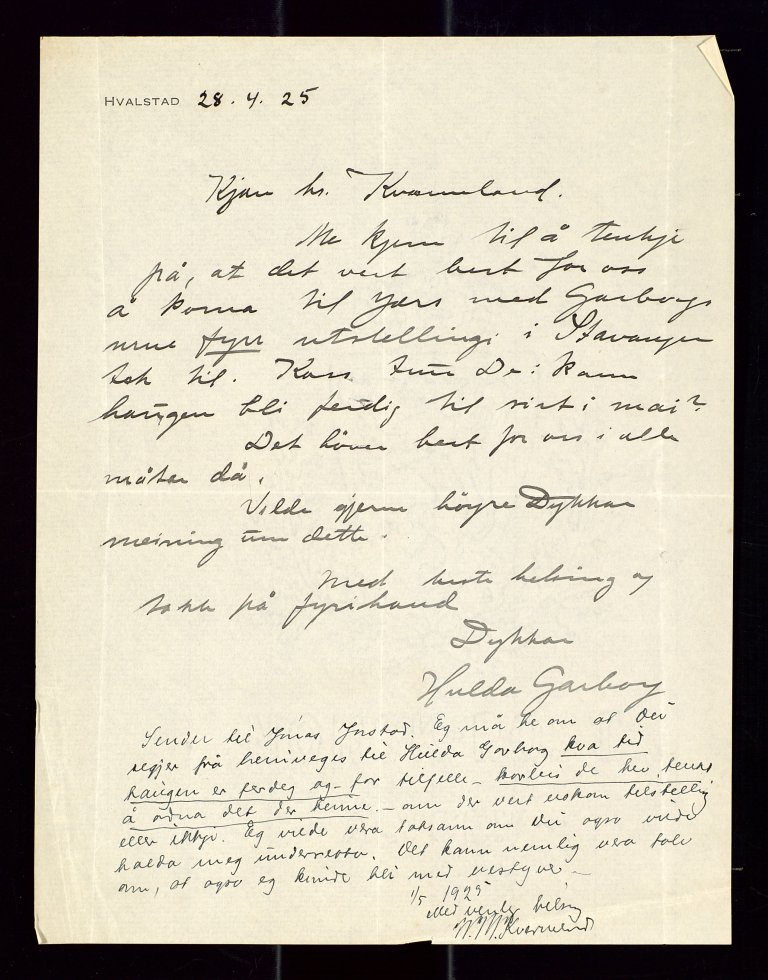 HVALSTAD 28. 4. 25
Kjære hr. Kvammeland.
Me kjem til å tenkje
på, at det vert best for oss
å koma til Jærs med Garborgs
urne fyrr utstellingi i Stavanger
tek til. Kass trur De: kann
haugen bli ferdig til sist i mai?
Det höver best for oss i alle
måtar då.
Vilde gjerne höyre Dykkar
meining um dette.
Med beste helsing og
takk på fyrihand
Dykkar
Hulda Garborg
Sender til Jonas Jorstad. Eg må be om at Dei
segjer frå beinveges til Hulda Garborg kva tid
haugen er ferdeg og for tilfelle korleis de hev tenkt
å ordna det der heime. - om der vert nokon tilstelling
eller ikkje. Eg vilde vera taksam om Du også vilde
halda meg underretta. Det kann nemlig vera tale
om, at også eg kunde bli med
1/5 1925
Med venleg helsing